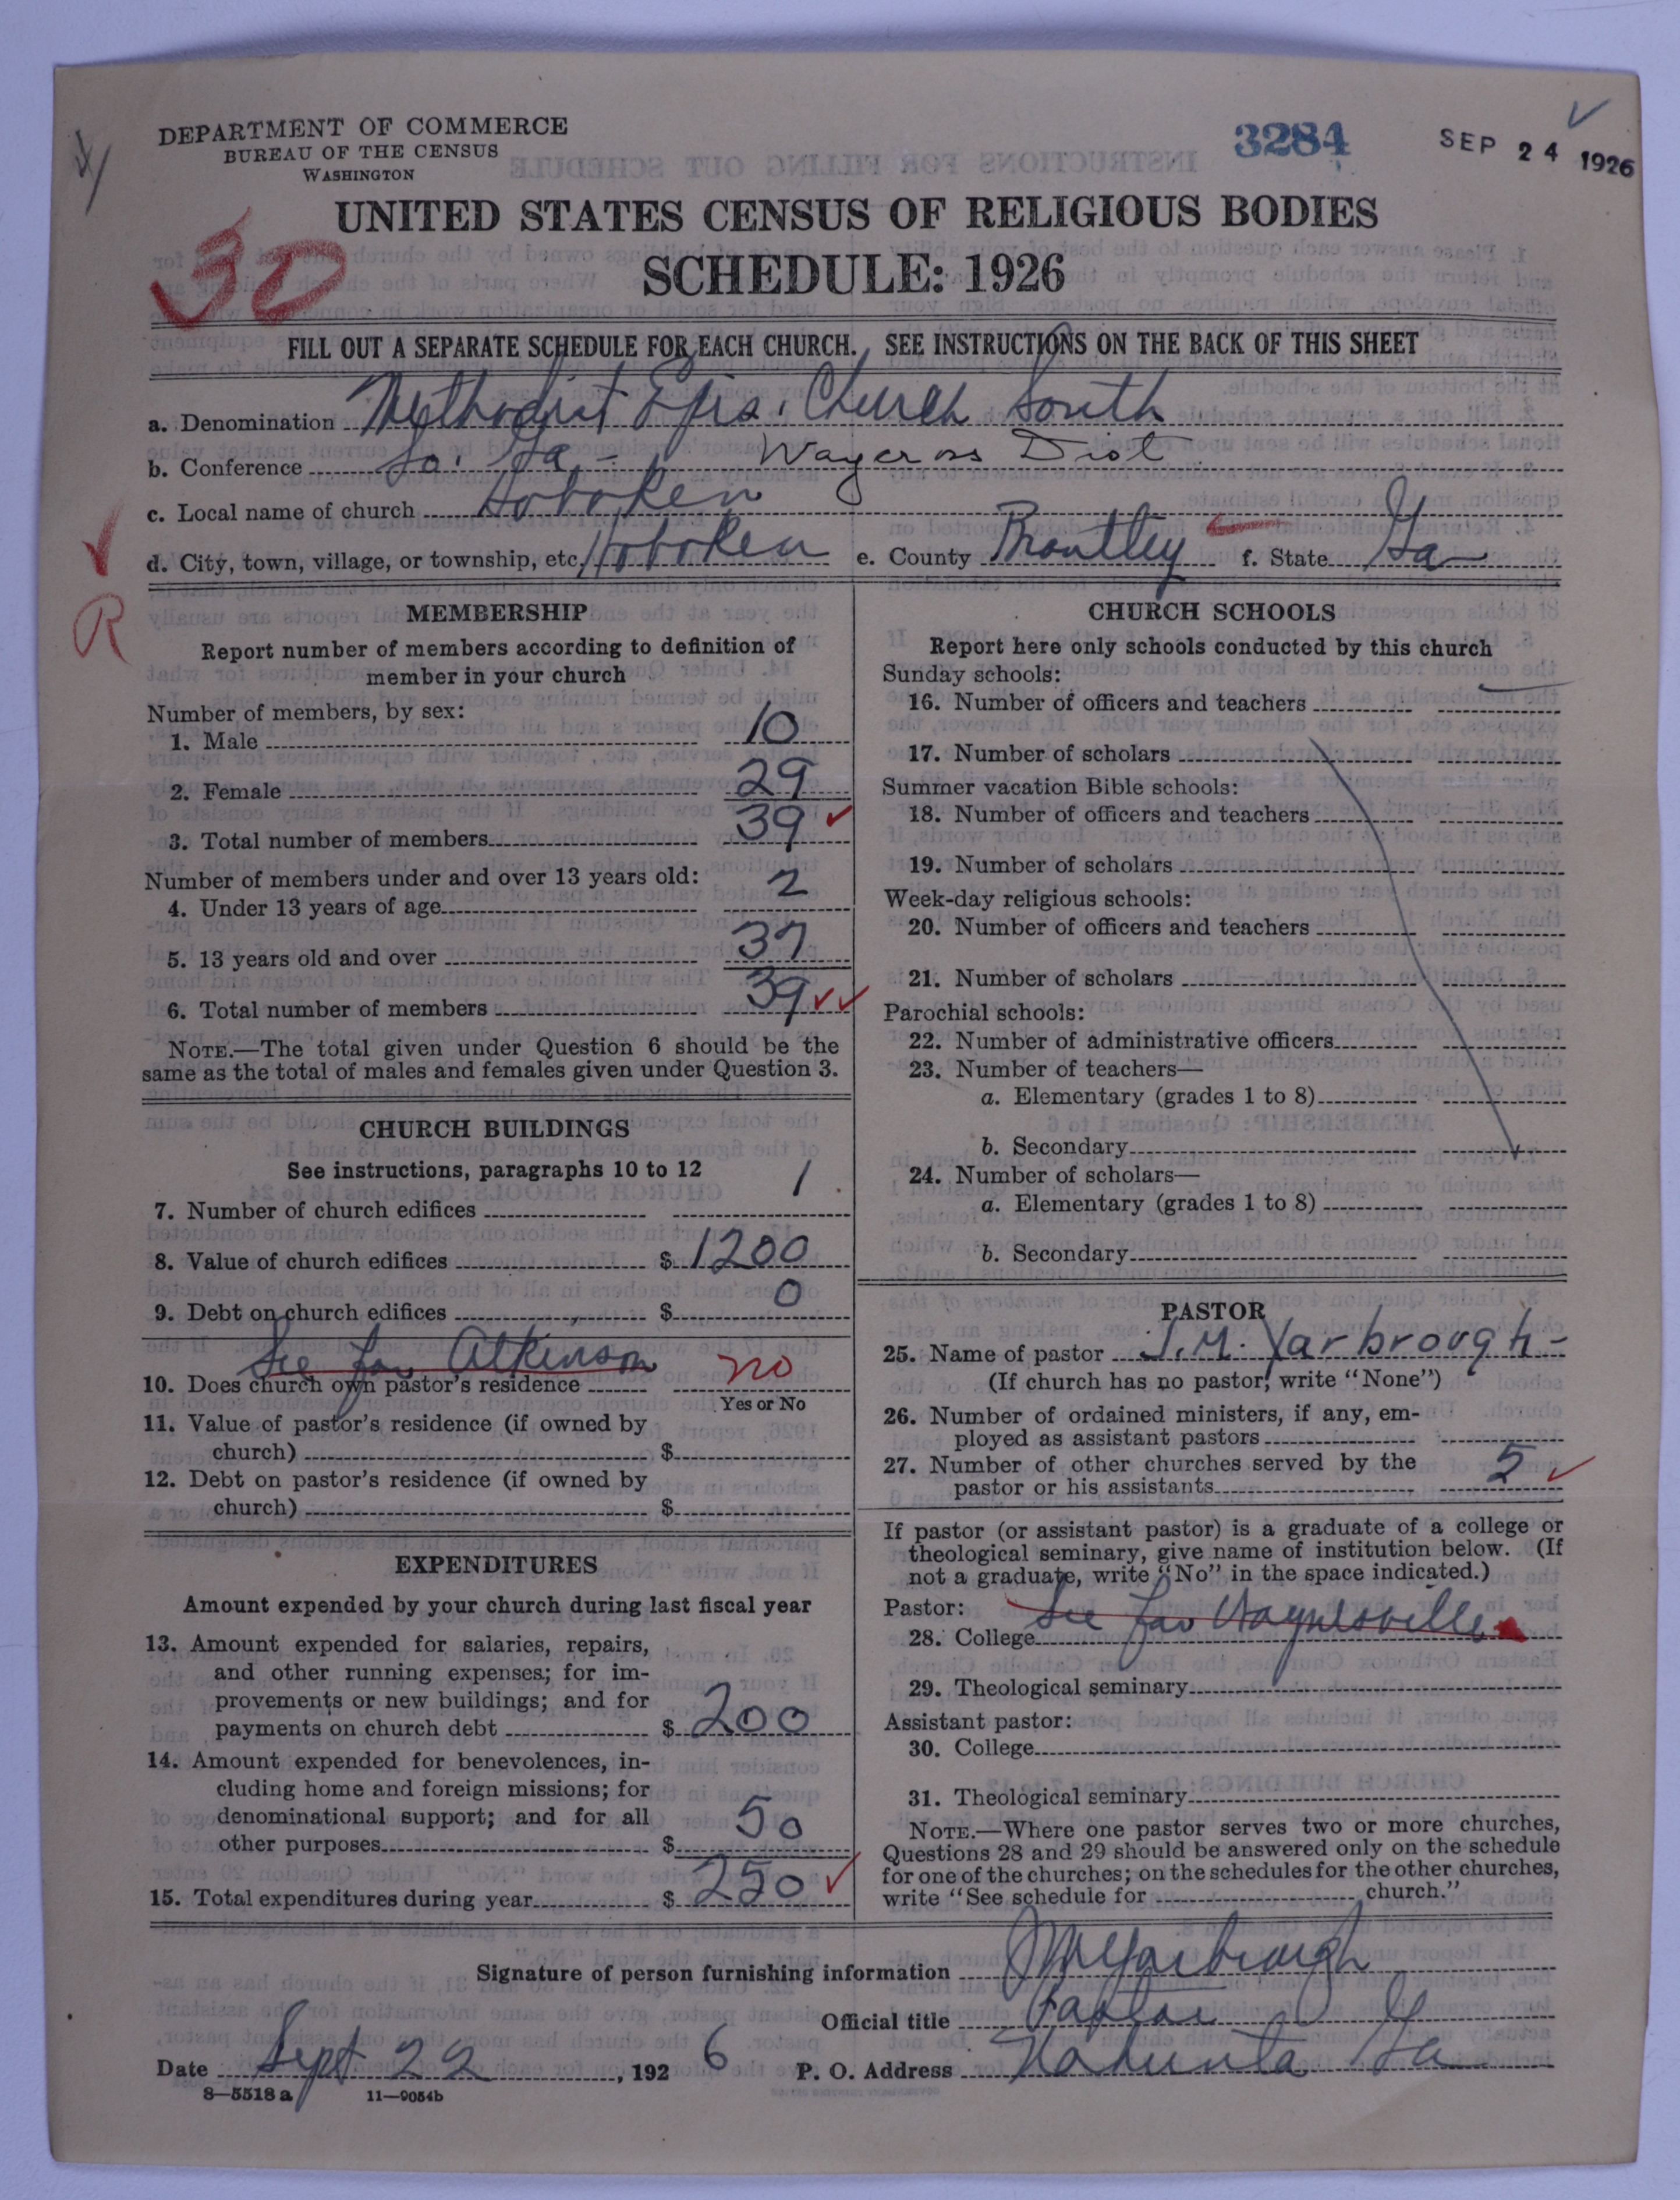 DEPARTMENT OF COMMERCE
BUREAU OF THE CENSUS
WASHINGTON
3284
SEP 24 1926
UNITED STATES CENSUS OF RELIGIOUS BODIES
SCHEDULE: 1926
30
FILL OUT A SEPARATE SCHEDULE FOR EACH CHURCH. SEE INSTRUCTIONS ON THE BACK OF THIS SHEET
a. Denomination Methodist Epis. Church South
b. Conference So. Ga. - Waycross Dist
c. Local name of church Hoboken
d. City, town, village, or township, etc. Hoboken e. County Brantley f. State Ga
R
MEMBERSHIP
Report number of members according to definition of
member in your church
Number of members, by sex:
1. Male 10
2. Female 29
3. Total number of members 39
Number of members under and over 13 years old:
4. Under 13 years of age 2
5. 13 years old and over 37
6. Total number of members 39
NOTE.—The total given under Question 6 should be the
same as the total of males and females given under Question 3.
CHURCH BUILDINGS
See instructions, paragraphs 10 to 12
7. Number of church edifices 1
8. Value of church edifices $ 1200
9. Debt on church edifices $ 0
See for Atkinson
10. Does church own pastor's residence no
Yes or No
11. Value of pastor's residence (if owned by
church) $
12. Debt on pastor's residence (if owned by
church) $
EXPENDITURES
Amount expended by your church during last fiscal year
13. Amount expended for salaries, repairs,
and other running expenses; for im-
provements or new buildings; and for
payments on church debt $ 200
14. Amount expended for benevolences, in-
cluding home and foreign missions; for
denominational support; and for all
other purposes $ 50
15. Total expenditures during year $ 250
CHURCH SCHOOLS
Report here only schools conducted by this church
Sunday schools:
16. Number of officers and teachers
17. Number of scholars
Summer vacation Bible schools:
18. Number of officers and teachers
19. Number of scholars
Week-day religious schools:
20. Number of officers and teachers
21. Number of scholars
Parochial schools:
22. Number of administrative officers
23. Number of teachers—
a. Elementary (grades 1 to 8)
b. Secondary
24. Number of scholars—
a. Elementary (grades 1 to 8)
b. Secondary
PASTOR
25. Name of pastor J. M. Yarbrough -
(If church has no pastor, write "None")
26. Number of ordained ministers, if any, em-
ployed as assistant pastors
27. Number of other churches served by the
pastor or his assistants 5
If pastor (or assistant pastor) is a graduate of a college or
theological seminary, give name of institution below. (If
not a graduate, write "No" in the space indicated.)
Pastor: See for Waynesville
28. College
29. Theological seminary
Assistant pastor:
30. College
31. Theological seminary
NOTE.—Where one pastor serves two or more churches,
Questions 28 and 29 should be answered only on the schedule
for one of the churches; on the schedules for the other churches,
write "See schedule for church."
Signature of person furnishing information J M Yarbrough
Official title Pastor
Date Sept 22, 1926 P. O. Address Nahunta Ga
8—5518 a 11—9054b